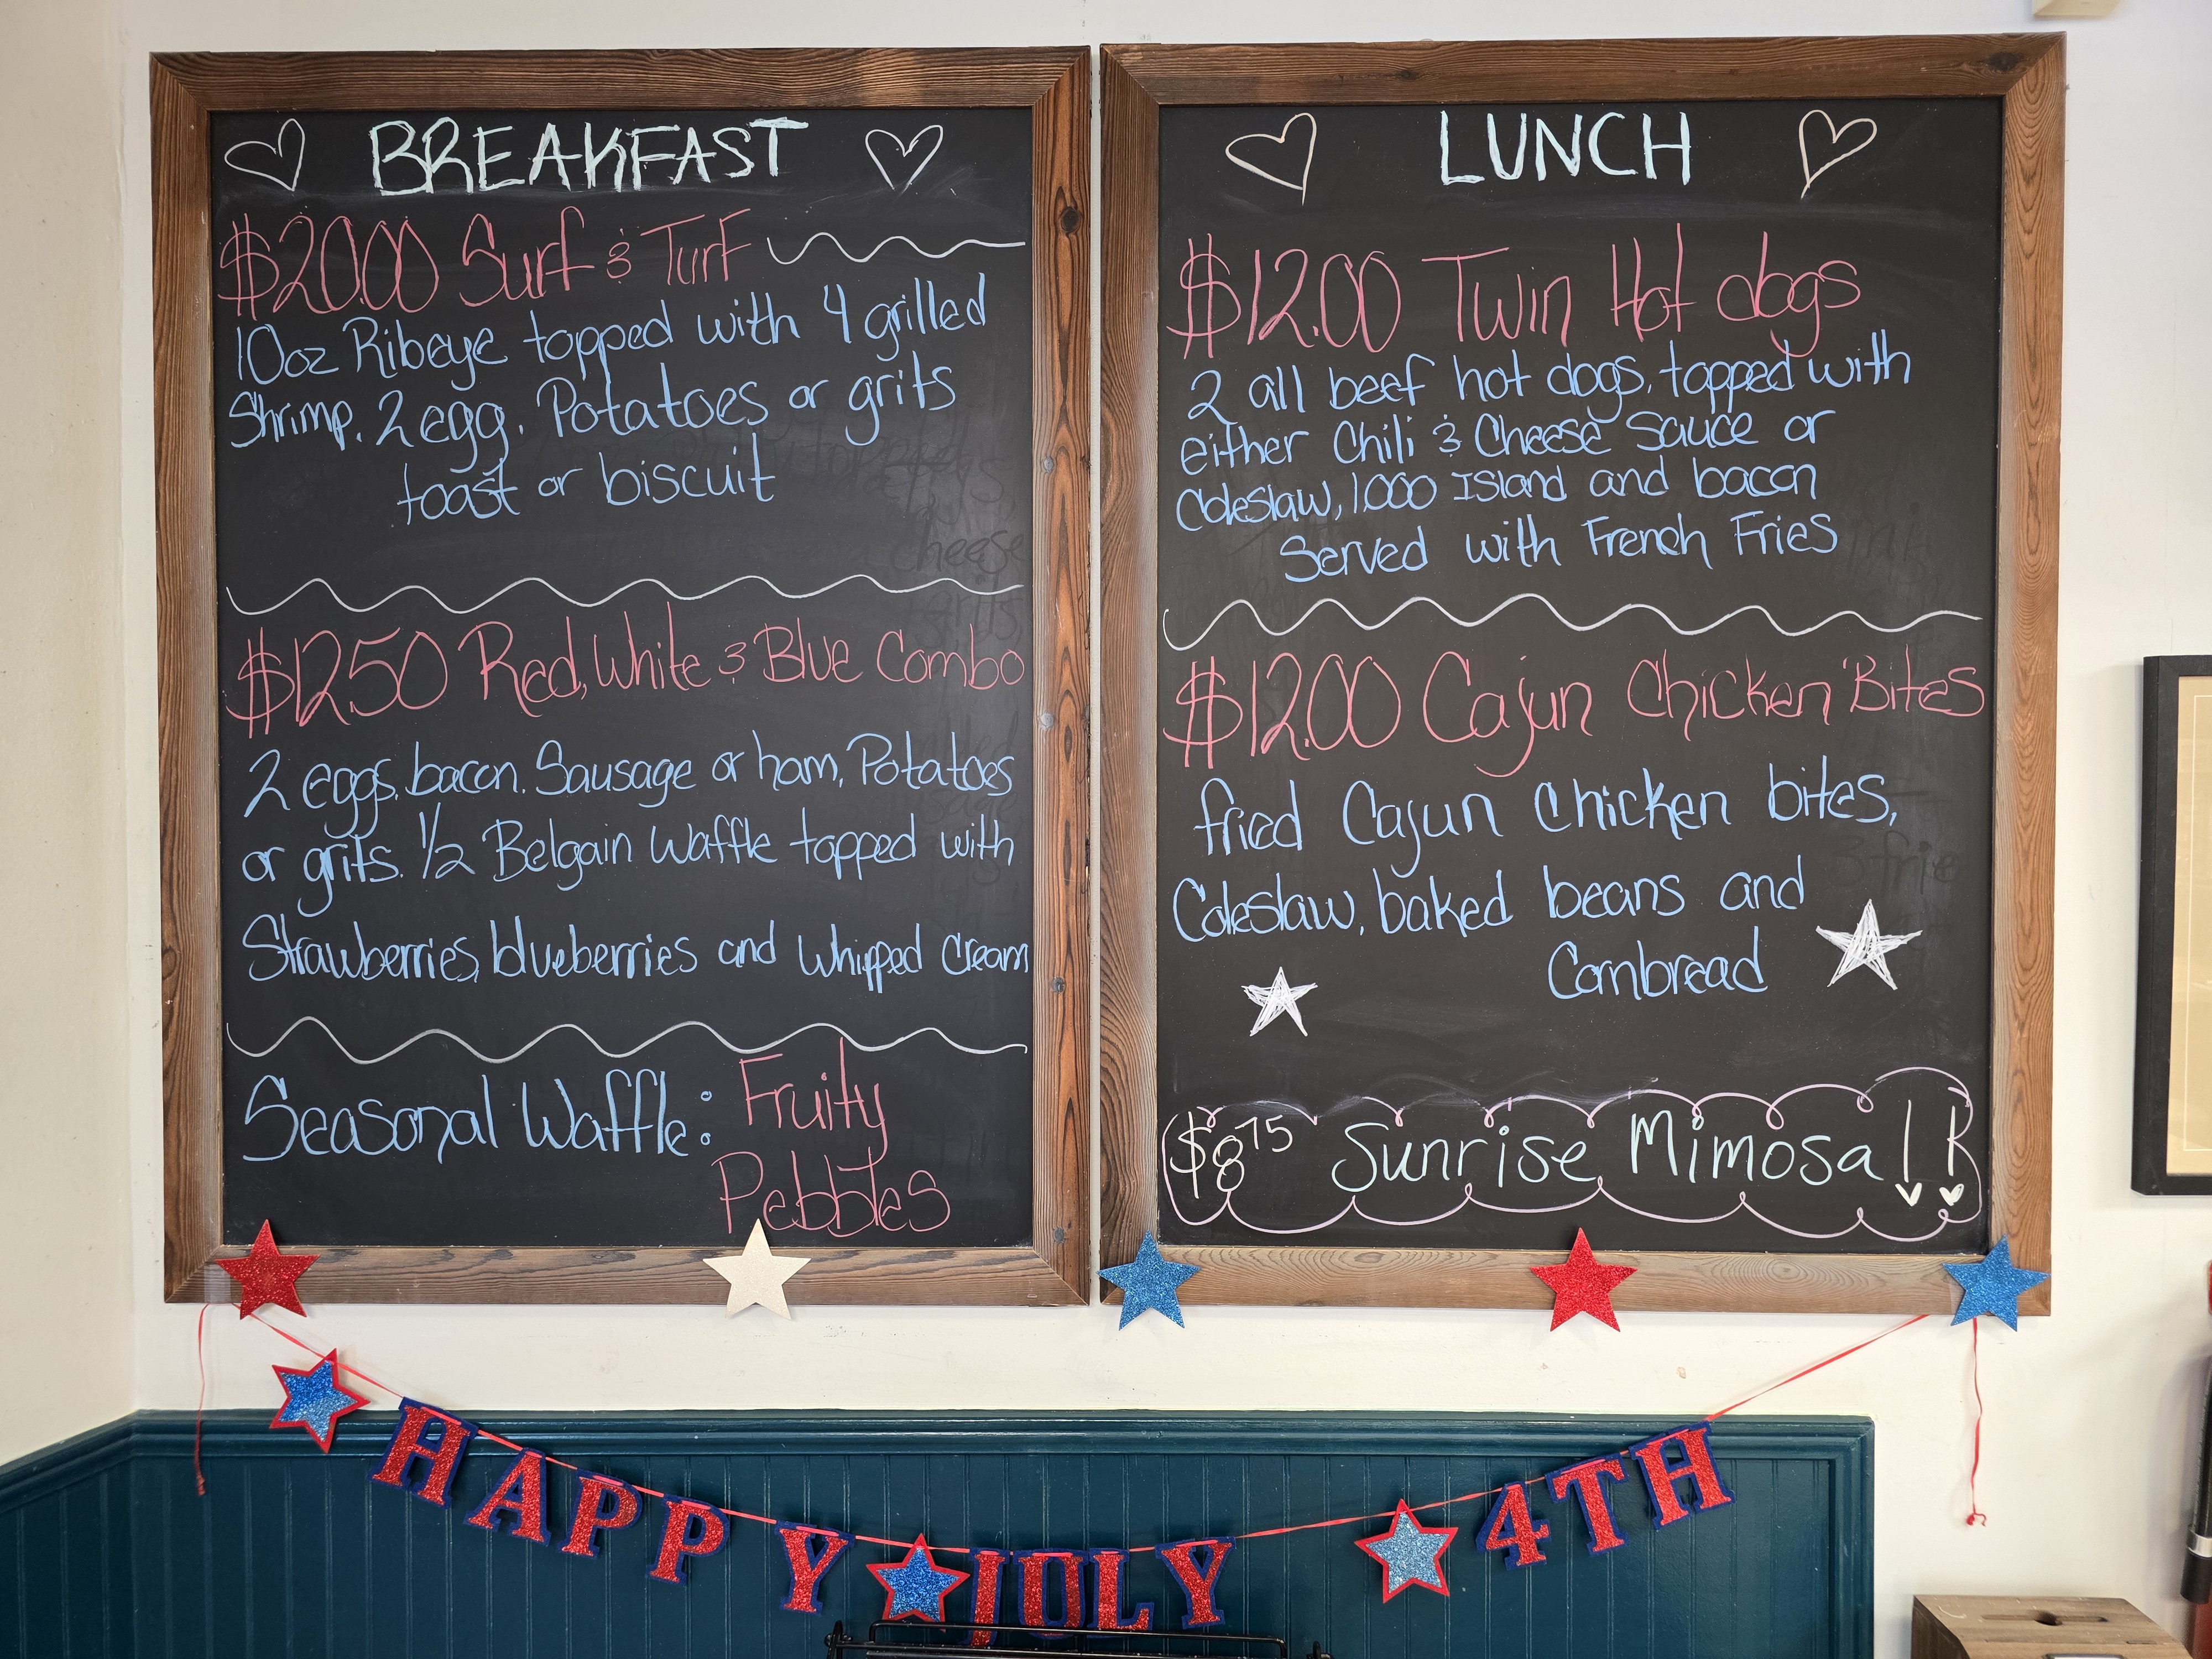 BREAKFAST
$20.00 Surf & Turf
10oz Ribeye topped with 4 grilled
Shrimp. 2 egg. Potatoes or grits
toast or biscuit
$12.50 Red, White & Blue Combo
2 eggs, bacon, Sausage or ham, Potatoes
or grits. 1/2 Belgain Waffle topped with
Strawberries, blueberries and Whipped Cream
Seasonal Waffle: Fruity
Pebbles
LUNCH
$12.00 Twin Hot dogs
2 all beef hot dogs, topped with
either Chili & Cheese Sauce or
Coleslaw, 1000 Island and bacon
Served with French Fries
$12.00 Cajun Chicken Bites
fried Cajun Chicken bites,
Coleslaw, baked beans and
Cornbread
$8.75 Sunrise Mimosa
HAPPY JULY 4TH